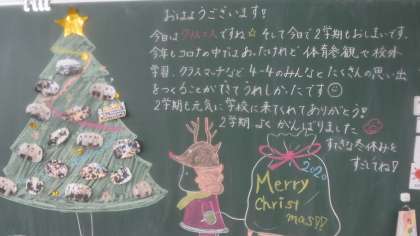 おはようございます!!
今日はクリスマスですね☆ そして今日で2学期もおしまいです。
今年もコロナの中ではあったけれど 体育参観や校外
学習、クラスマッチなど 4-4のみんなと たくさんの思い出
をつくることができてうれしかったです☺
2学期も元気に学校に来てくれてありがとう!
2学期 よく がんばりました
すてきな冬休みを
すごしてね!
2020
Merry
Christ
mas!!